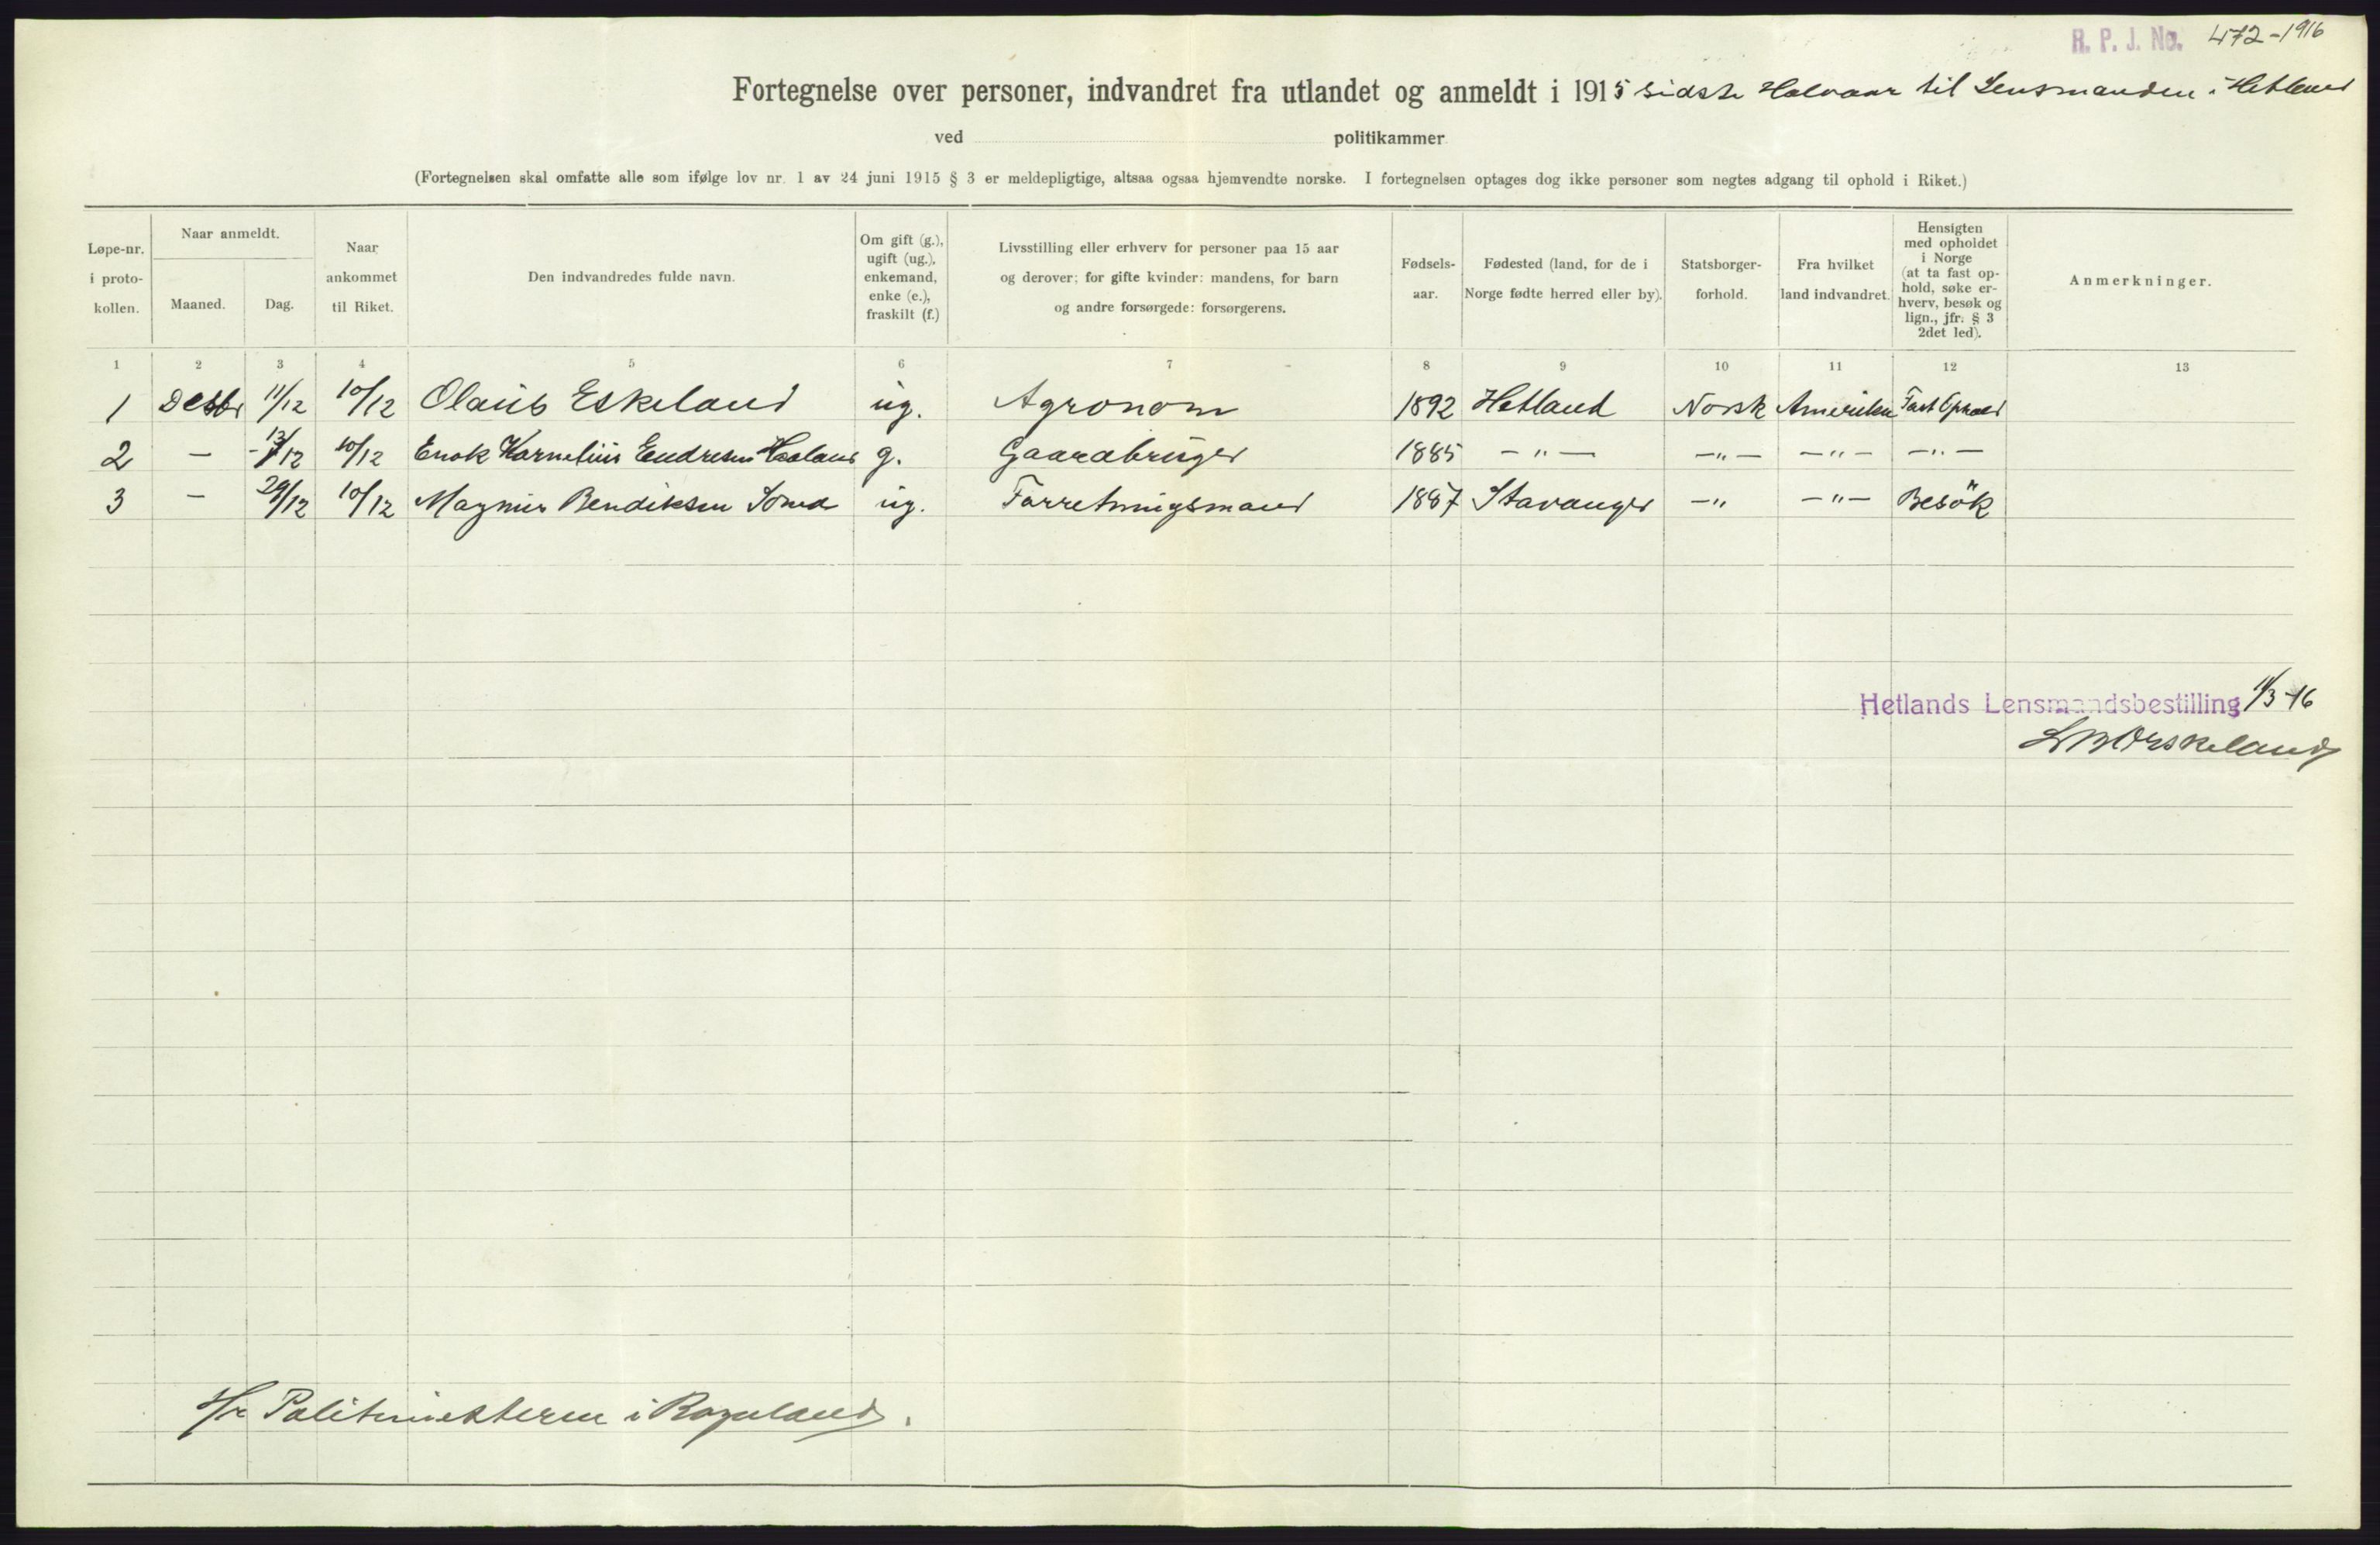 R. P. J. No. 472-1916
Fortegnelse over personer, indvandret fra utlandet og anmeldt i 1915 sidste Halvaar til Lensmanden i Hetland
ved politikammer
(Fortegnelsen skal omfatte alle som ifølge lov nr. 1 av 24 juni 1915 § 3 er meldepligtige, altsaa ogsaa hjemvendte norske. I fortegnelsen optages dog ikke personer som negtes adgang til ophold i Riket.)
Løpe-nr.
i proto-
kollen.
Naar anmeldt.
Maaned. Dag.
Naar
ankommet
til Riket.
Den indvandredes fulde navn.
Om gift (g.),
ugift (ug.),
enkemand,
enke (e.),
fraskilt (f.)
Livsstilling eller erhverv for personer paa 15 aar
og derover; for gifte kvinder: mandens, for barn
og andre forsørgede: forsørgerens.
Fødsels-
aar.
Fødested (land, for de i
Norge fødte herred eller by).
Statsborger-
forhold.
Fra hvilket
land indvandret.
Hensigten
med opholdet
i Norge
(at ta fast op-
hold, søke er-
hverv, besøk og
lign., jfr. § 3
2det led).
Anmerkninger.
1 2 3 4 5 6 7 8 9 10 11 12 13
1 Desbr 11/12 10/12 Olaus Eskeland ug. Agronom 1892 Hetland Norsk Amerika Fast Ophold
2 — 13/12 10/12 Enok Kornelius Endresen Haaland g. Gaardbruger 1885 —„— —„— —„— —„—
3 — 29/12 10/12 Magnus Bendiksen ug. Forretningsmand 1887 Stavanger —„ —„— Besök
Hetlands Lensmandsbestilling 11/3-16
Hr Politimesteren i Rogaland.